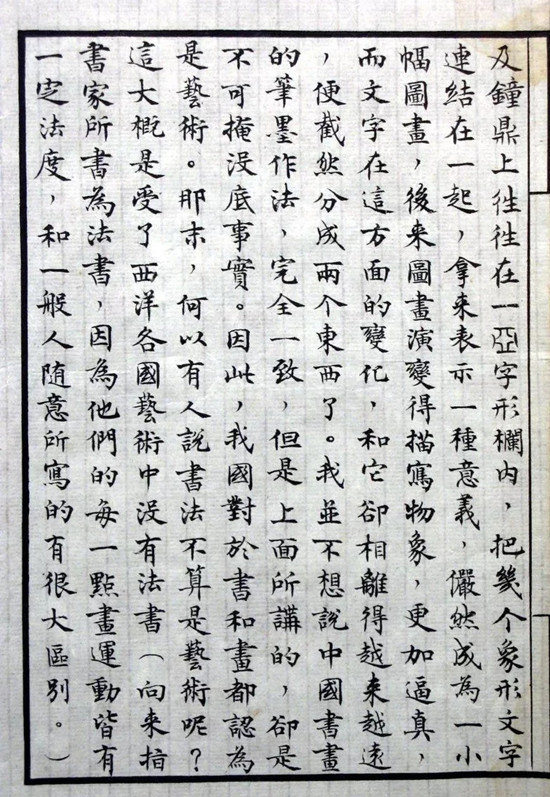 及鐘鼎上往往在一亞字形欄内，把幾个象形文字
連結在一起，拿来表示一種意義，儼然成為一小
幅圖畫，後来圖畫演變得描寫物象，更加逼真，
而文字在這方面的變化，和它卻相離得越来越遠
，便截然分成兩个東西了。我並不想說中國書畫
的筆墨作法，完全一致，但是上面所講的，卻是
不可掩沒底事實。因此，我國對於書和畫都認為
是藝術。那末，何以有人說書法不算是藝術呢？
這大概是受了西洋各國藝術中没有法書（向来指
書家所書為法書，因為他們的每一點畫運動皆有
一定法度，和一般人随意所寫的有很大區別。）